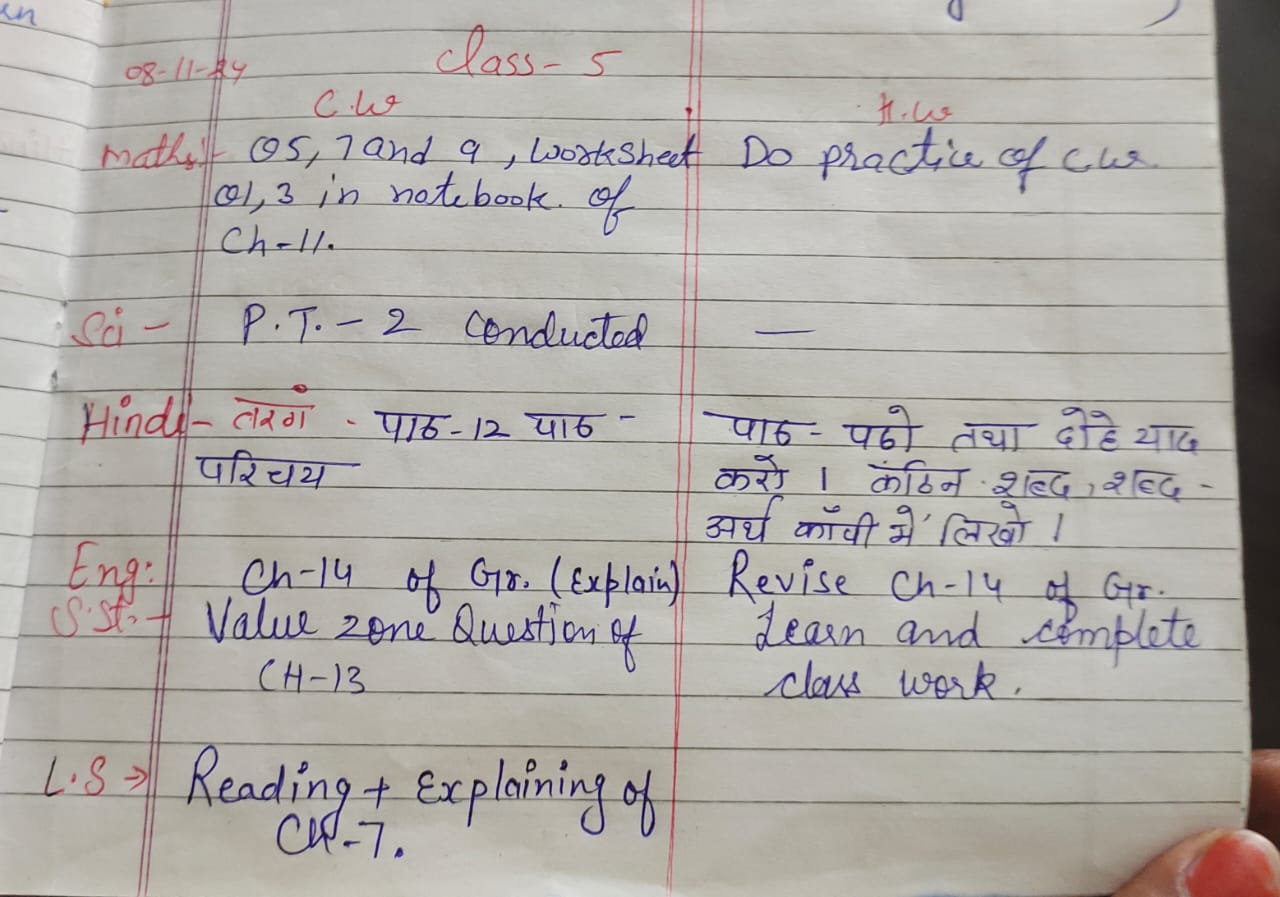 08-11-24 Class- 5
C.W H.W
Maths:- Q5, 7 and 9, Worksheet Do practice of C.W.
Q1, 3 in notebook. of
Ch-11.
Sci - P.T. - 2 Conducted —
Hindi - तरगं - पाठ-12 पाठ - पाठ - पढो तथा दोहे याद
परिचय करो । कठिन शब्द, शब्द -
अर्थ कॉपी में लिखो ।
Eng: Ch-14 of Gr. (Explain) Revise Ch-14 of Gr.
S.St. - Value zone Question of Learn and complete
CH-13 class work.
L.S → Reading + Explaining of
CH-7.